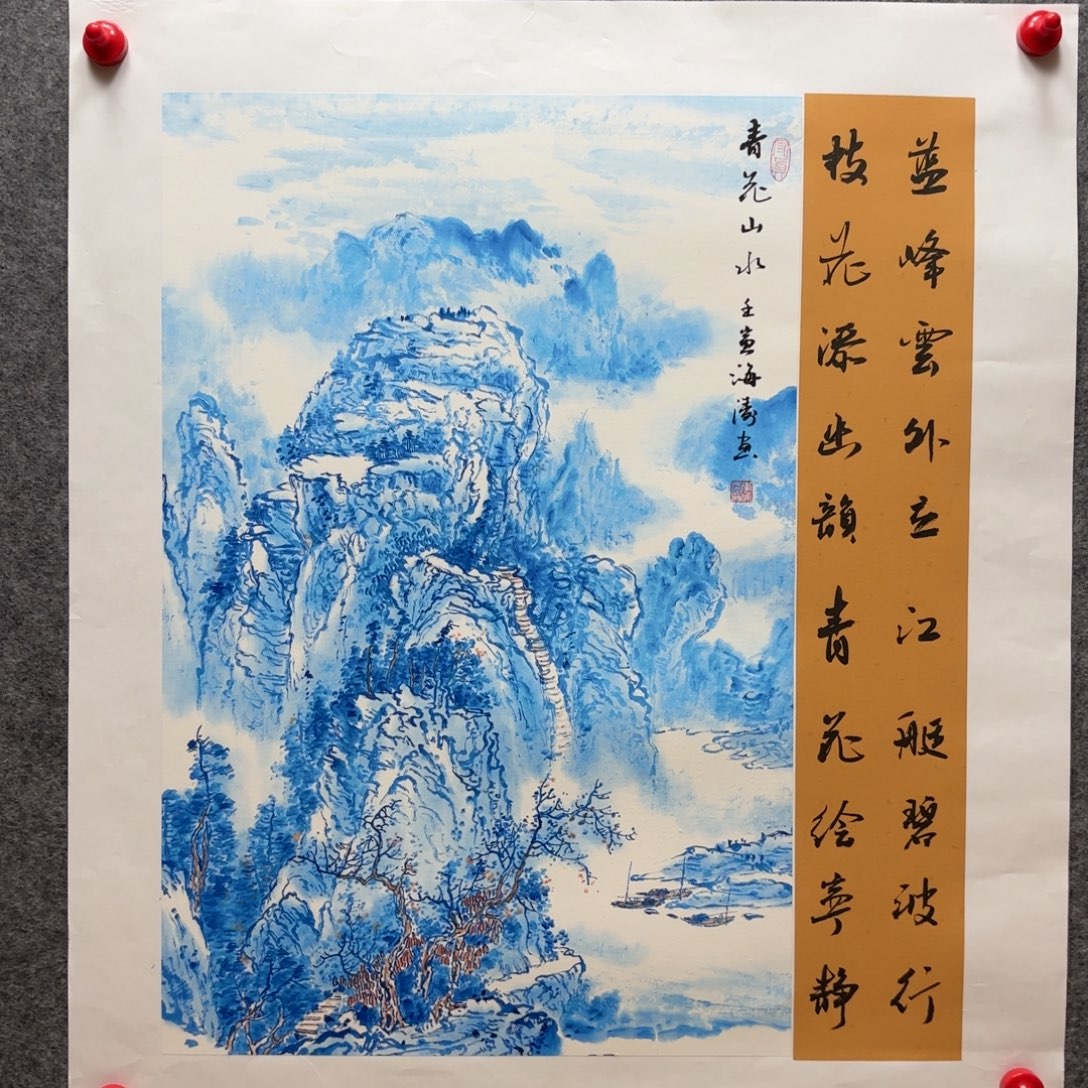 蓝峰雲外立江艇碧波行
枝花添幽韻青花绘寧静
青花山水
壬寅海涛画